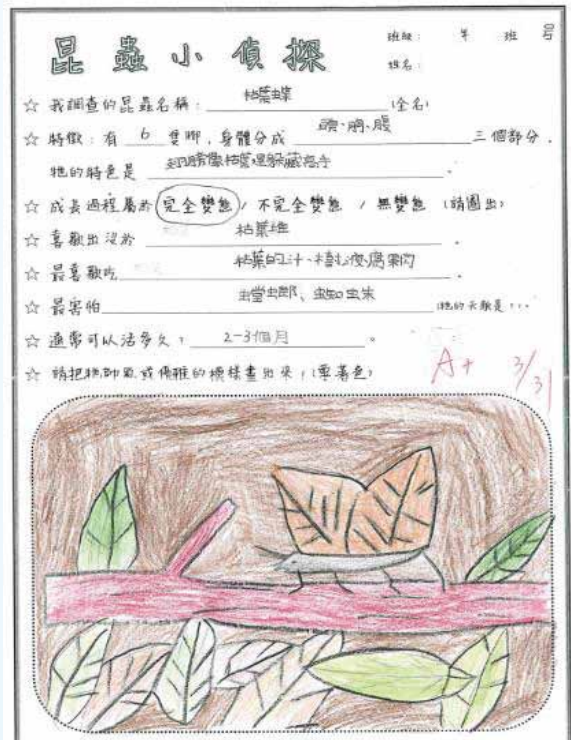 昆蟲小偵探
班級： 年 班 号
姓名：
☆ 我調查的昆蟲名稱： 枯葉蝶 (全名)
☆ 特徵：有 6 隻腳，身體分成 頭、胸、腹 三個部分，
牠的特色是 翅膀像枯葉 躲藏高手 。
☆ 成長過程屬於 完全變態 / 不完全變態 / 無變態 (請圈出)
☆ 喜歡出沒於 枯葉堆 。
☆ 最喜歡吃 枯葉的汁、樹液、腐果肉 。
☆ 最害怕 螳螂、蜘蛛 (牠的天敵是...
☆ 通常可以活多久？ 2-3個月 。
☆ 請把牠帥氣或優雅的模樣畫出來！(要著色)
A+ 3/31